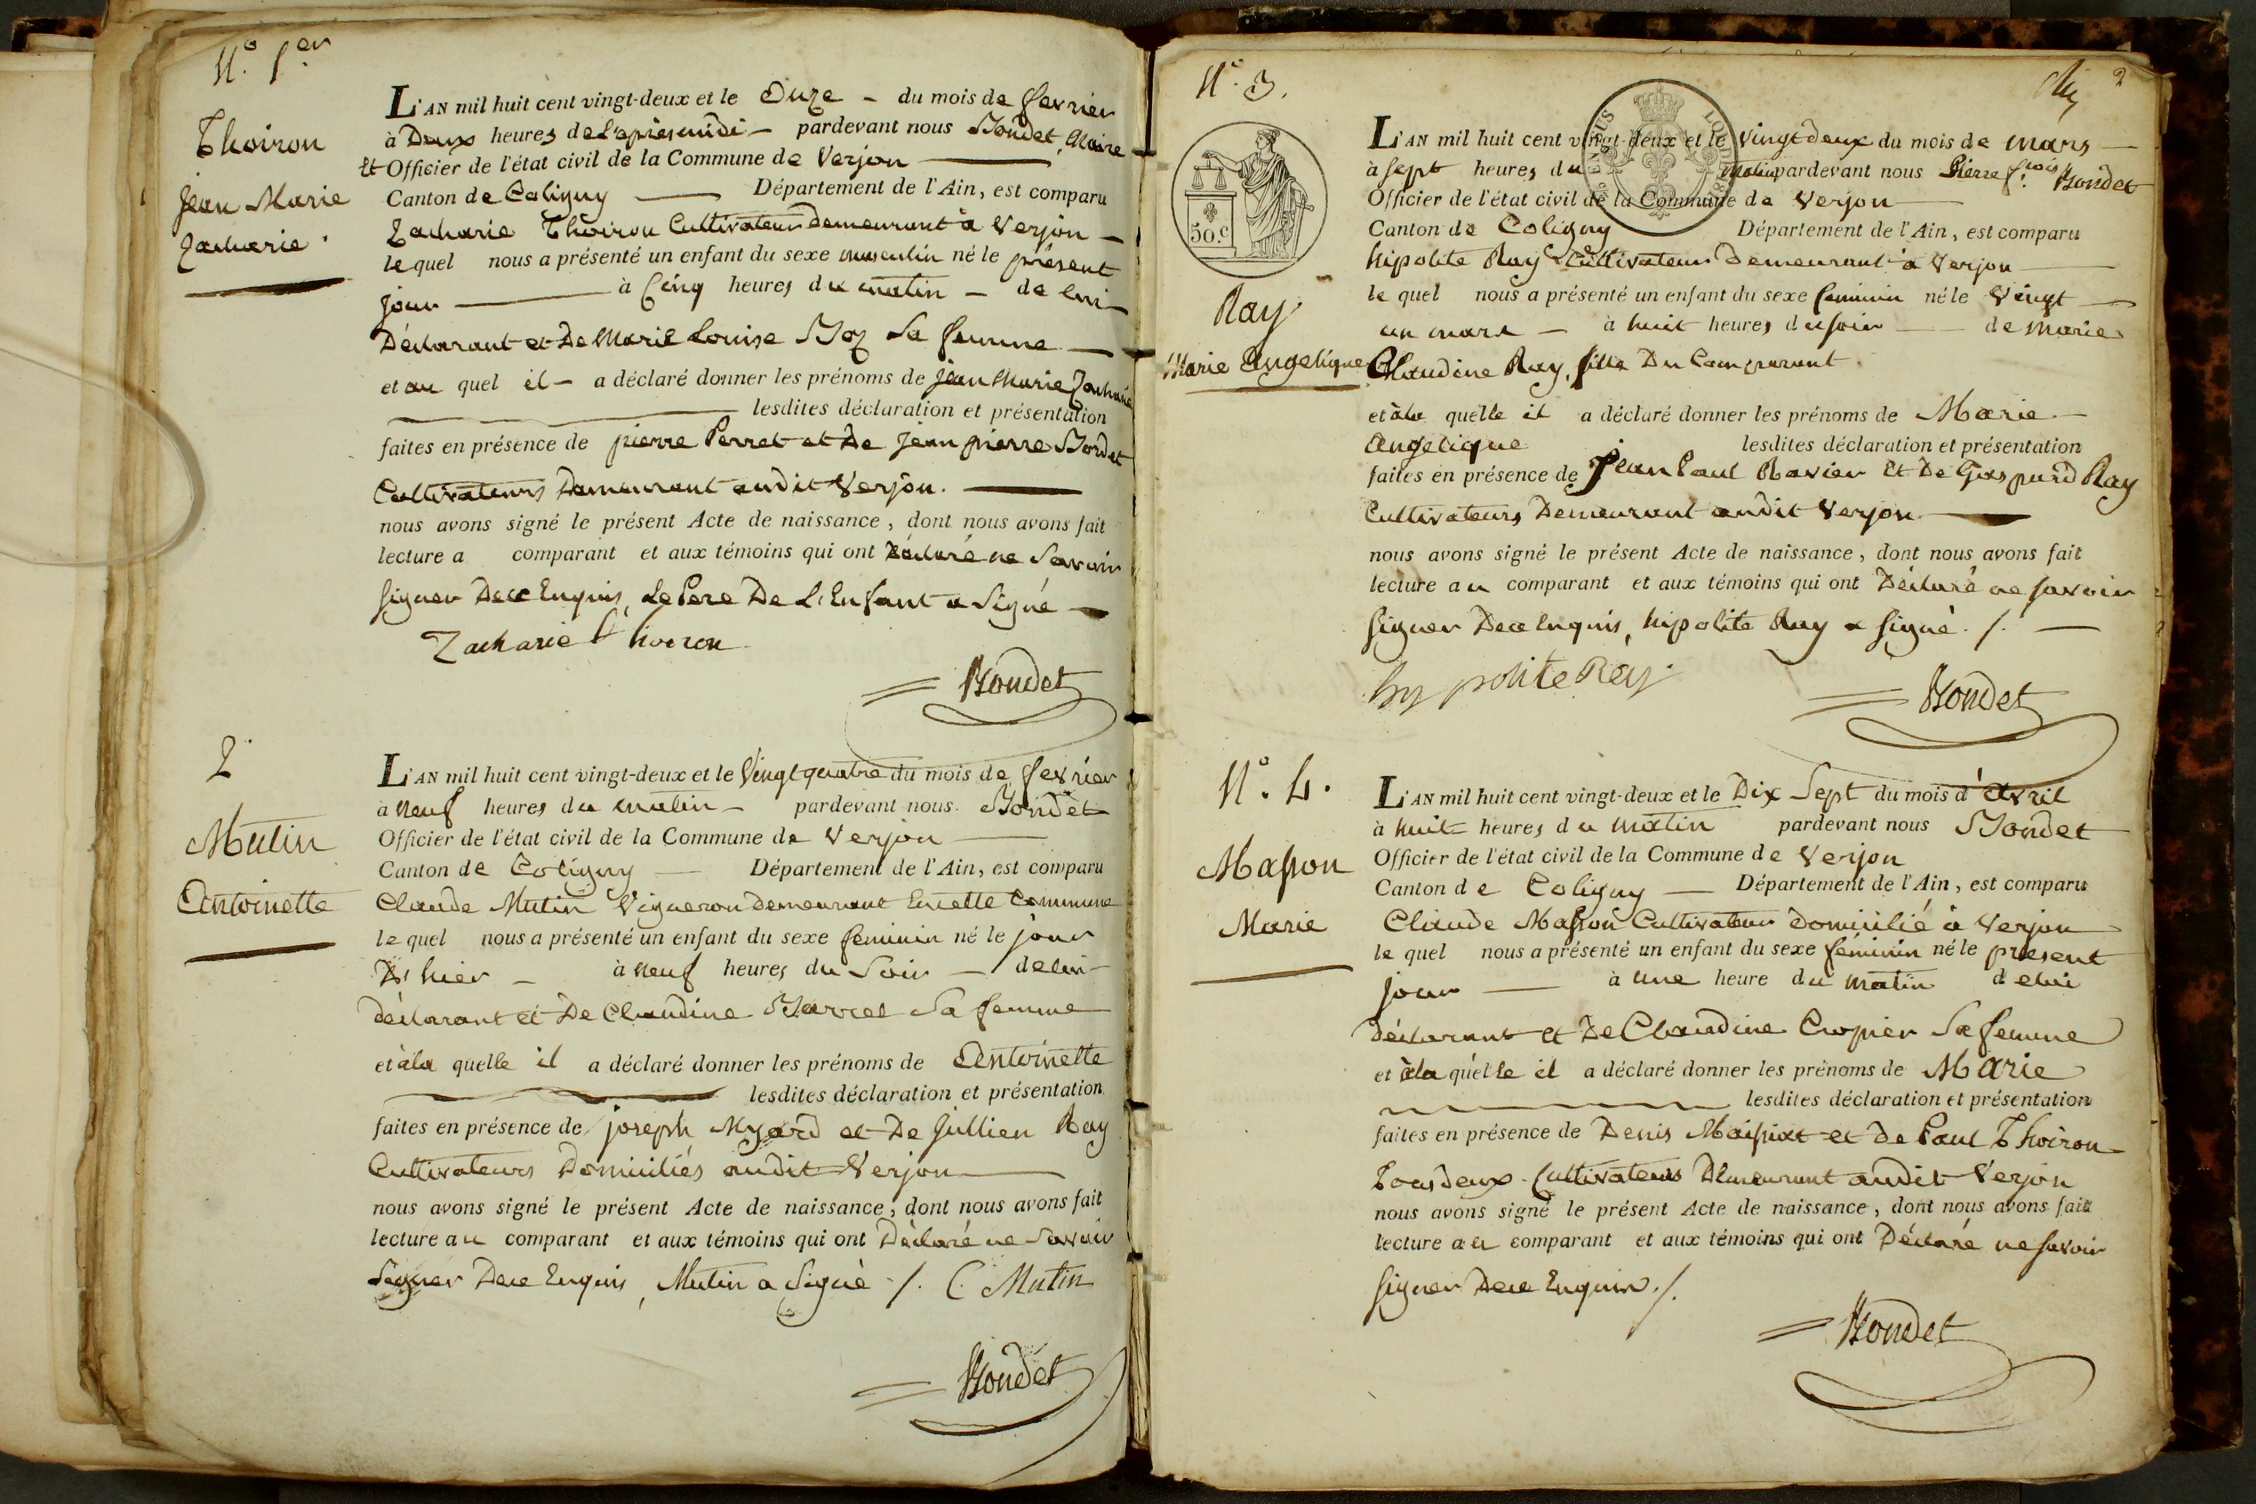 N.º 1.er
Thoiron
Jean Marie
Zacharie.
L'AN mil huit cent vingt-deux et le Onze - du mois de fevrier
à Deux heures de L'apresmidi - pardevant nous Bondet, Maire
Et Officier de l'état civil de la Commune de Verjon
Canton de Coligny Département de l'Ain, est comparu
Zacharie Thoiron Cultivateur demeurant à Verjon
le quel nous a présenté un enfant du sexe masculin né le présent
jour à Cinq heures du matin - de lui
Déclarant et De Marie Louise Boz Sa femme
et au quel il - a déclaré donner les prénoms de Jean Marie Zacharie
lesdites déclaration et présentation
faites en présence de pierre Perret et De Jean pierre Bondet
Cultivateurs Demeurant audit Verjon.
nous avons signé le présent Acte de naissance, dont nous avons fait
lecture a comparant et aux témoins qui ont Déclaré ne Savoir
signer Dece Enquis, Le Pere De L'Enfant a Signé
Zacharie Thoiron
Bondet
2
Mutin
Antoinette
L'AN mil huit cent vingt-deux et le Vingt quatre du mois de fevrier
à neuf heures du matin - pardevant nous Bondet
Officier de l'état civil de la Commune de Verjon
Canton de Coligny Département de l'Ain, est comparu
Claude Mutin Vigneron demeurant Enette Commune
le quel nous a présenté un enfant du sexe feminin né le jour
D'hier - à neuf heures du Soir - de lui
déclarant et De Claudine Sa femme
et à la quelle il a déclaré donner les prénoms de Antoinette
lesdites déclaration et présentation
faites en présence de joseph Myard et De Jullien Ray
Cultivateurs Domiciliés audit Verjon
nous avons signé le présent Acte de naissance, dont nous avons fait
lecture au comparant et aux témoins qui ont Déclaré ne Savoir
Signer Dece Enquis, Mutin a Signé ./. C. Mutin
Bondet
2
N.º 3.
50.c
Ray
Marie Angelique
L'AN mil huit cent vingt-deux et le Vingt deux du mois de mars
à sept heures du matin pardevant nous Pierre f.çois Bondet
Officier de l'état civil de la Commune de Verjon
Canton de Coligny Département de l'Ain, est comparu
hipolite Ray Cultivateur Demeurant à Verjon
le quel nous a présenté un enfant du sexe feminin né le Vingt
un mars - à huit heures du soir de Marie
Claudine Ray, fille Du Comparant
et à la quelle il a déclaré donner les prénoms de Marie
Angelique lesdites déclaration et présentation
faites en présence de Jean Paul Ravier Et De Gaspard Ray
Cultivateurs Demeurant audit Verjon
nous avons signé le présent Acte de naissance, dont nous avons fait
lecture au comparant et aux témoins qui ont Déclaré ne savoir
signer Dece Enquis, hipolite Ray a signé ./.
hypolite Rey
Bondet
N.º 4.
Masson
Marie
L'AN mil huit cent vingt-deux et le Dix Sept du mois d'avril
à huit heures du matin pardevant nous Bondet
Officier de l'état civil de la Commune de Verjon
Canton de Coligny Département de l'Ain, est comparu
Claude Masson Cultivateur Domicilié à Verjon
le quel nous a présenté un enfant du sexe féminin né le présent
jour à une heure du matin de lui
déclarant et De Claudine Cropier Sa femme
et à la quelle il a déclaré donner les prénoms de Marie
lesdites déclaration et présentation
faites en présence de Denis et de Paul Thoiron
Tous deux Cultivateurs Demeurant audit Verjon
nous avons signé le présent Acte de naissance, dont nous avons fait
lecture au comparant et aux témoins qui ont Déclaré ne savoir
signer Dece Enquis ./.
Bondet